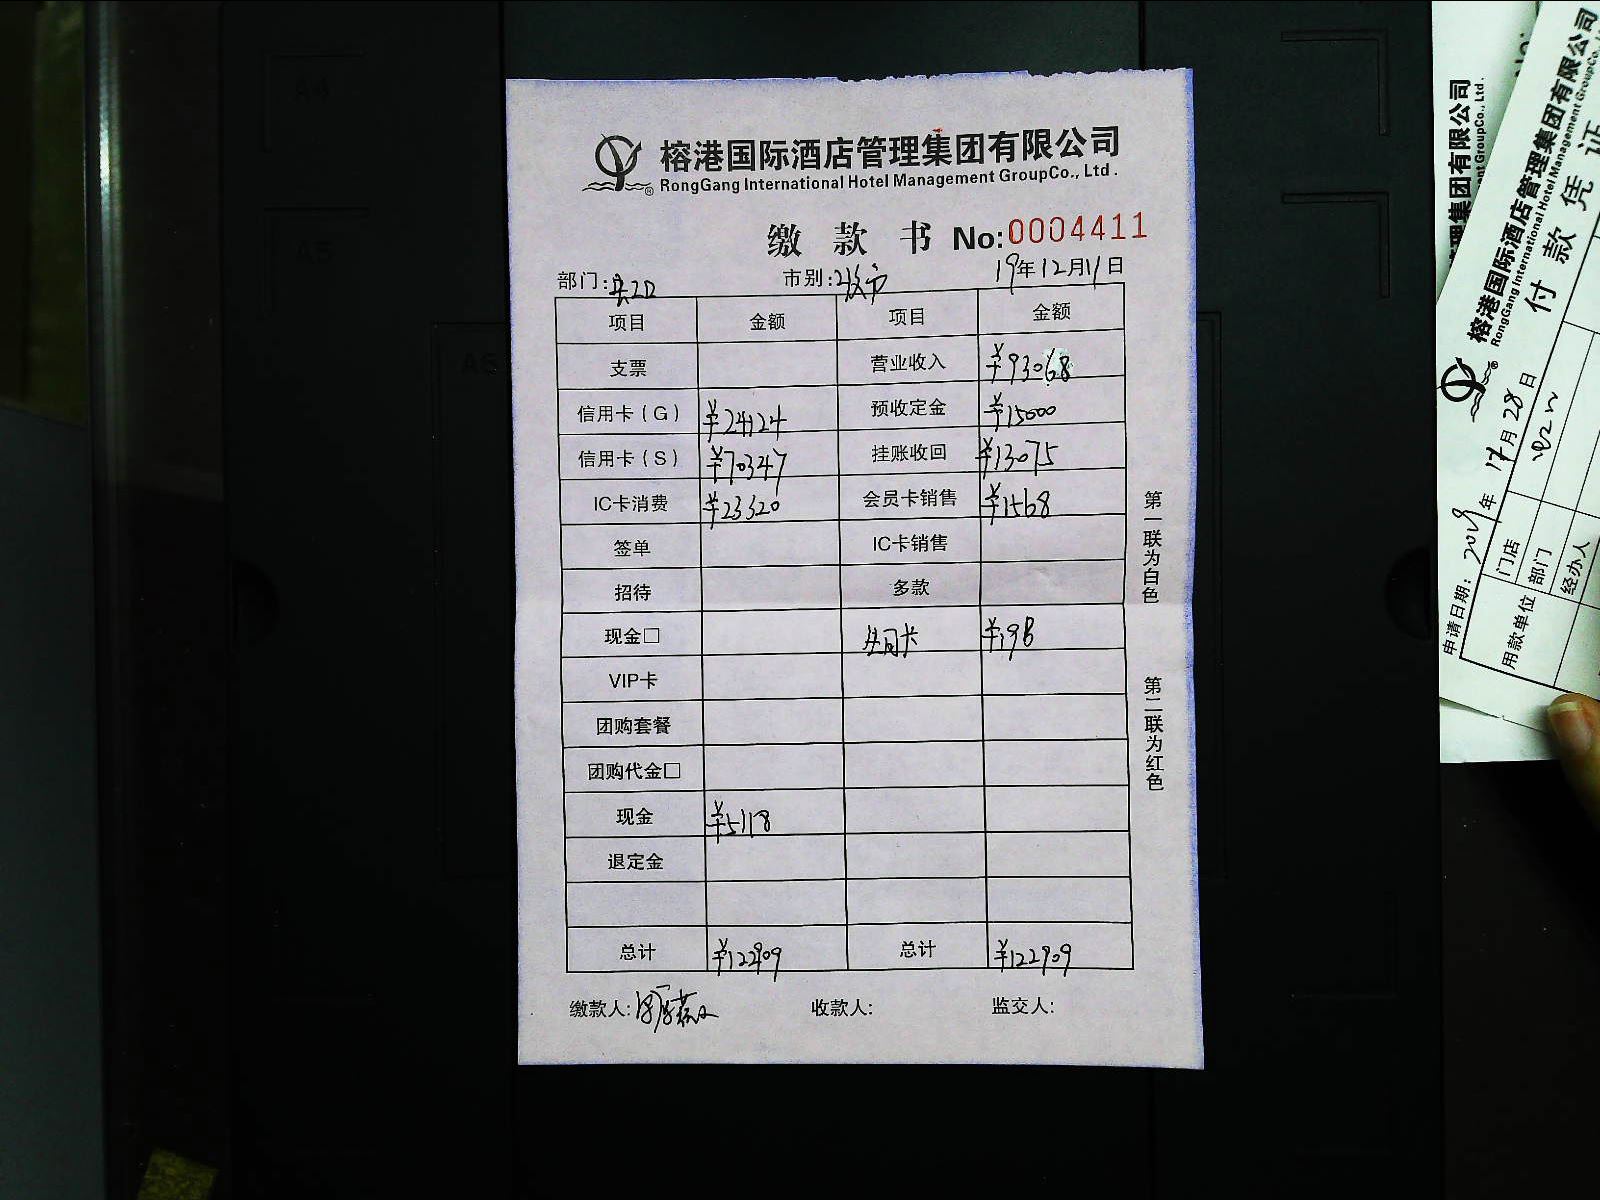 榕港国际酒店管理集团有限公司
RongGang International Hotel Management GroupCo., Ltd.
缴款书 No:0004411
部门: 市别: 19年12月11日
项目 金额 项目 金额
支票 营业收入 ¥93068
信用卡(G) ¥24124 预收定金 ¥15000
信用卡(S) ¥70347 挂账收回 ¥13075
IC卡消费 ¥23320 会员卡销售 ¥1568
签单 IC卡销售
招待 多款
现金□ 卡 ¥198
VIP卡
团购套餐
团购代金□
现金 ¥5118
退定金
总计 ¥122909 总计 ¥122909
缴款人: 收款人: 监交人:
第一联为白色
第二联为红色
集团有限公司
nt GroupCo., Ltd.
榕港国际酒店管理集团有限公司
RongGang International Hotel Management GroupCo.,
付款凭证
申请日期: 2019年12月28日
用款单位
门店
部门
经办人
A4
A5